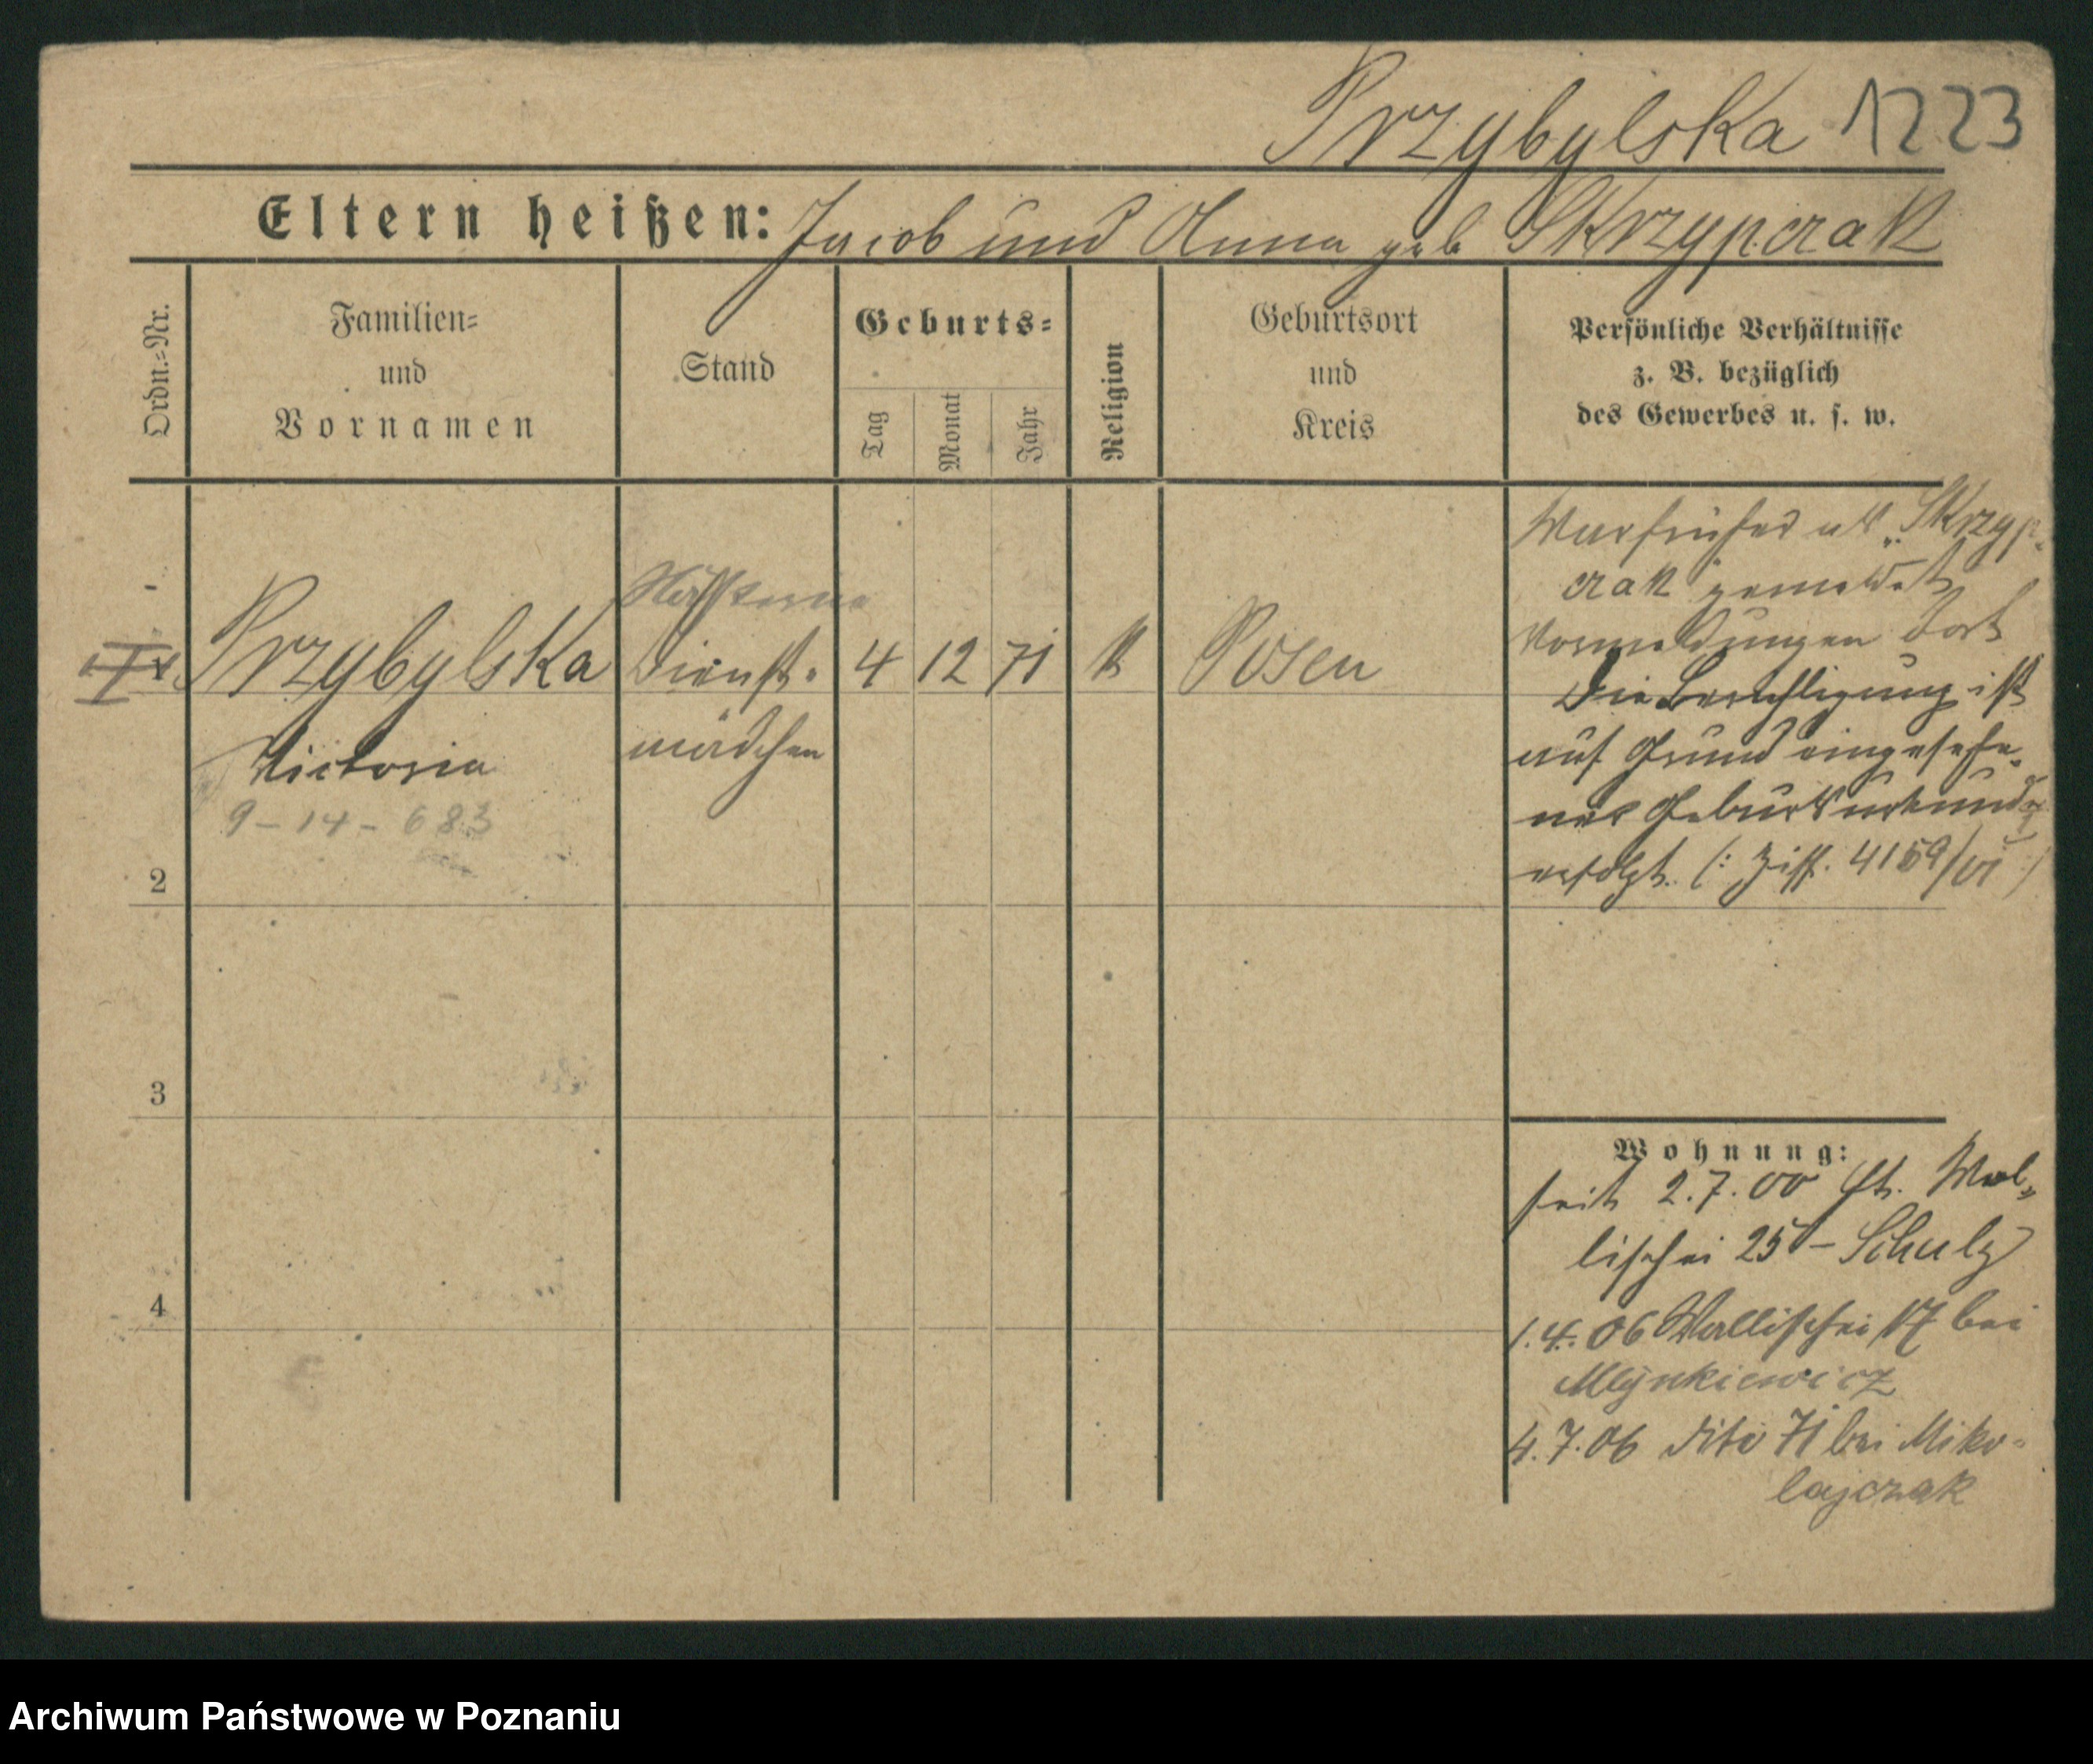 Przybylska 1223
Eltern heißen: Jacob und Anna geb Skrzypczak
Ordn.-Nr.
Familien-
und
Vornamen
Stand
Geburts-
Tag
Monat
Jahr
Religion
Geburtsort
und
Kreis
Persönliche Verhältnisse
z. B. bezüglich
des Gewerbes u. s. w.
Przybylska
Victoria
9-14-683
Dienst-
mädchen
4 12 71
K
Posen
War früher als „Skrzyp-
czak" gemeldet
Vormeldungen dort
Die Berichtigung ist
auf Grund eingesehe-
ner Geburtsurkunde
erfolgt. (: Ziff. 4159/01 :)
2
3
4
Wohnung:
seit 2.7.00 St. Wal-
lischei 25 - Schulz
1.4.06 Wallischei 17 bei
Mlynkiewicz
4.7.06 dito 71 bei Miko-
lajczak
Archiwum Państwowe w Poznaniu